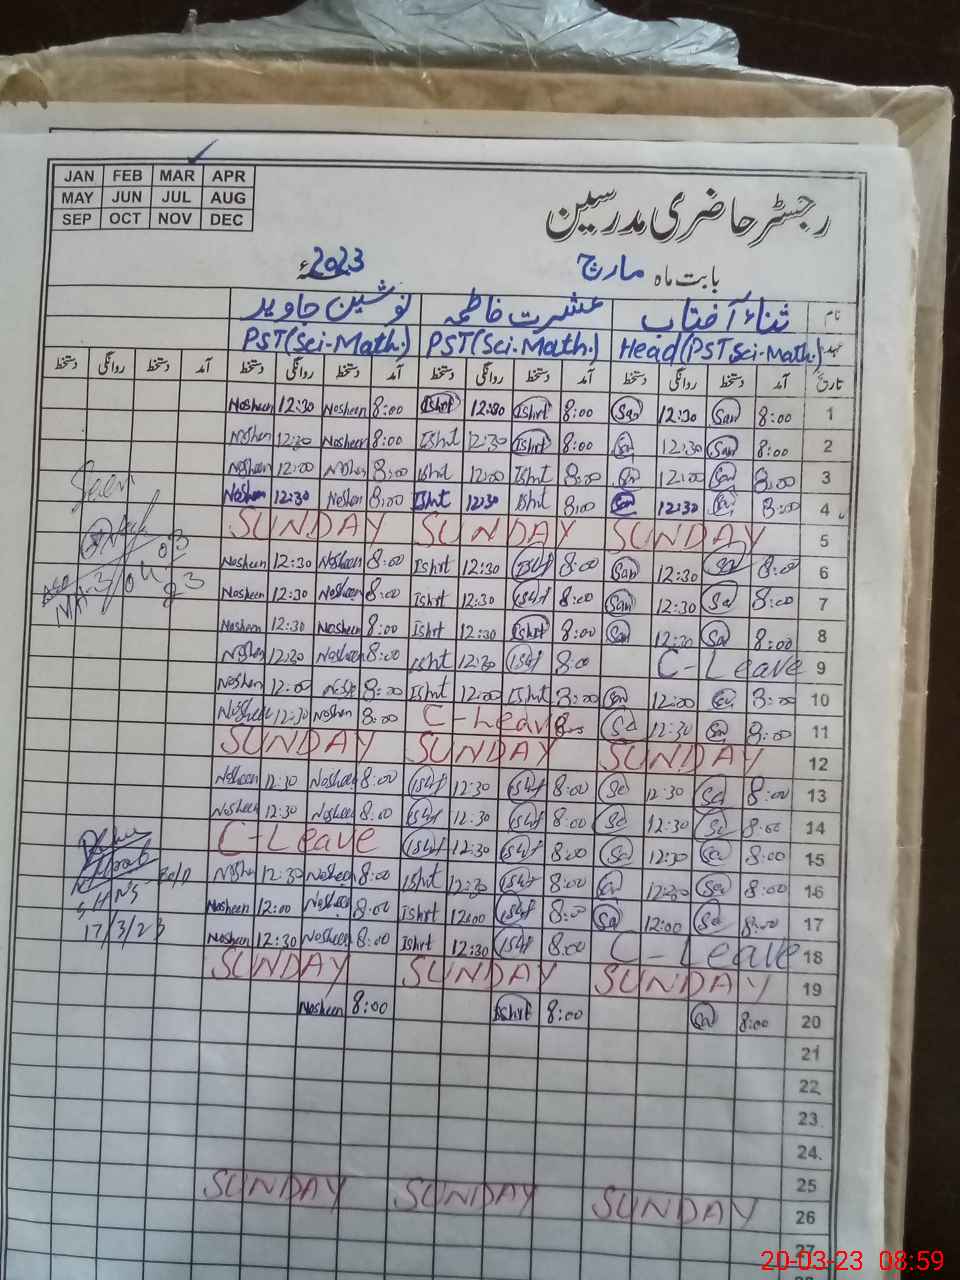 JAN FEB MAR APR
MAY JUN JUL AUG
SEP OCT NOV DEC
رجسٹر حاضری مدرسین
بابت ماہ مارچ 2023ء
نام ثناء آفتاب عشرت فاطمہ نوشین جاوید
عہدہ Head (PST Sci-Math.) PST (Sci.Math.) PST (Sci-Math.)
تاریخ آمد دستخط روانگی دستخط آمد دستخط روانگی دستخط آمد دستخط روانگی دستخط آمد دستخط روانگی دستخط
Nosheen 12:30 Nosheen 8:00 Ishrt 12:30 Ishrt 8:00 San 12:30 San 8:00 1
Nosheen 12:30 Nosheen 8:00 Ishrt 12:30 Ishrt 8:00 12:30 San 8:00 2
Nosheen 12:00 8:00 Ishrt 12:00 Ishrt 8:00 12:00 8:00 3
Nosheen 12:30 Nosheen 8:00 Ishrt 12:30 Ishrt 8:00 12:30 8:00 4
SUNDAY SUNDAY SUNDAY 5
Nosheen 12:30 Nosheen 8:00 Ishrt 12:30 8:00 San 12:30 8:00 6
Nosheen 12:30 Nosheen 8:00 Ishrt 12:30 8:00 San 12:30 8:00 7
Nosheen 12:30 Nosheen 8:00 Ishrt 12:30 Ishrt 8:00 12:30 8:00 8
12:30 Nosheen 8:00 Ishrt 12:30 8:00 C-Leave 9
12:00 8:00 Ishrt 12:00 Ishrt 8:00 12:00 8:00 10
12:30 8:00 C-Leave 12:30 8:00 11
SUNDAY SUNDAY SUNDAY 12
Nosheen 12:30 Nosheen 8:00 12:30 8:00 12:30 8:00 13
Nosheen 12:30 Nosheen 8:00 12:30 8:00 12:30 8:00 14
C-Leave 12:30 8:00 12:30 8:00 15
12:30 Nosheen 8:00 Ishrt 12:30 8:00 12:30 8:00 16
Nosheen 12:00 Nosheen 8:00 Ishrt 12:00 8:00 12:00 8:00 17
17/3/23
Nosheen 12:30 Nosheen 8:00 Ishrt 12:30 8:00 C-Leave 18
SUNDAY SUNDAY SUNDAY 19
Nosheen 8:00 Ishrt 8:00 8:00 20
21
22
23
24
25
SUNDAY SUNDAY SUNDAY 26
27
20-03-23 08:59